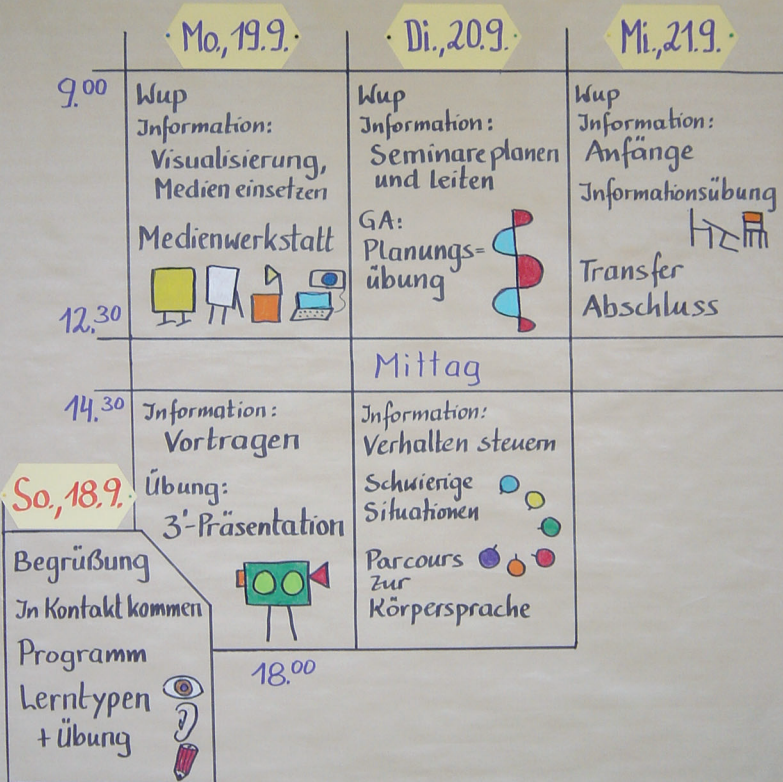 Mo., 19.9.
Di., 20.9.
Mi., 21.9.
9.00
Wup
Information:
Visualisierung,
Medien einsetzen
Medienwerkstatt
Wup
Information:
Seminare planen
und leiten
GA:
Planungs=
übung
Wup
Information:
Anfänge
Informationsübung
Transfer
Abschluss
12.30
Mittag
14.30
Information:
Vortragen
Übung:
3'-Präsentation
Information:
Verhalten steuern
Schwierige
Situationen
Parcours
zur
Körpersprache
18.00
So., 18.9.
Begrüßung
In Kontakt kommen
Programm
Lerntypen
+ Übung